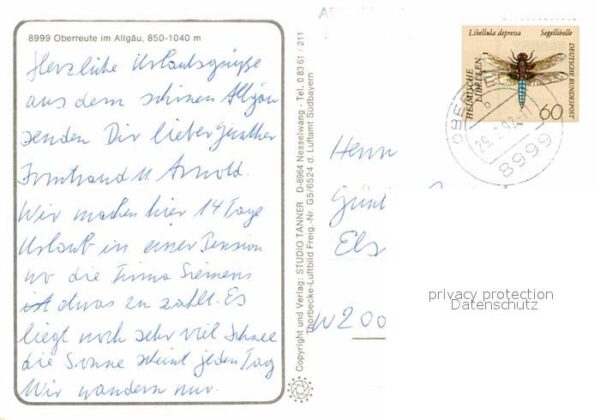 8999 Oberreute im Allgäu, 850-1040 m
Herzliche Urlaubsgrüße
aus dem schönen Allgäu
senden Dir lieber Günther
u Arnold.
Wir machen hier 14 Tage
Urlaub in einer Pension
wo die Firma Siemens
etwas zu zahlt. Es
liegt noch sehr viel Schnee
die Sonne scheint jeden Tag
Wir wandern nur.
Copyright und Verlag: STUDIO TANNER D-8964 Nesselwang - Tel. 0 83 61 / 211
Thorbecke-Luftbild Freig.-Nr. G5/6524 d. Luftamt Südbayern
Libellula depressa Segellibelle
HEIMISCHE LIBELLEN
DEUTSCHE BUNDESPOST
60
8999
Herrn
Günt
Els
W 200
privacy protection
Datenschutz